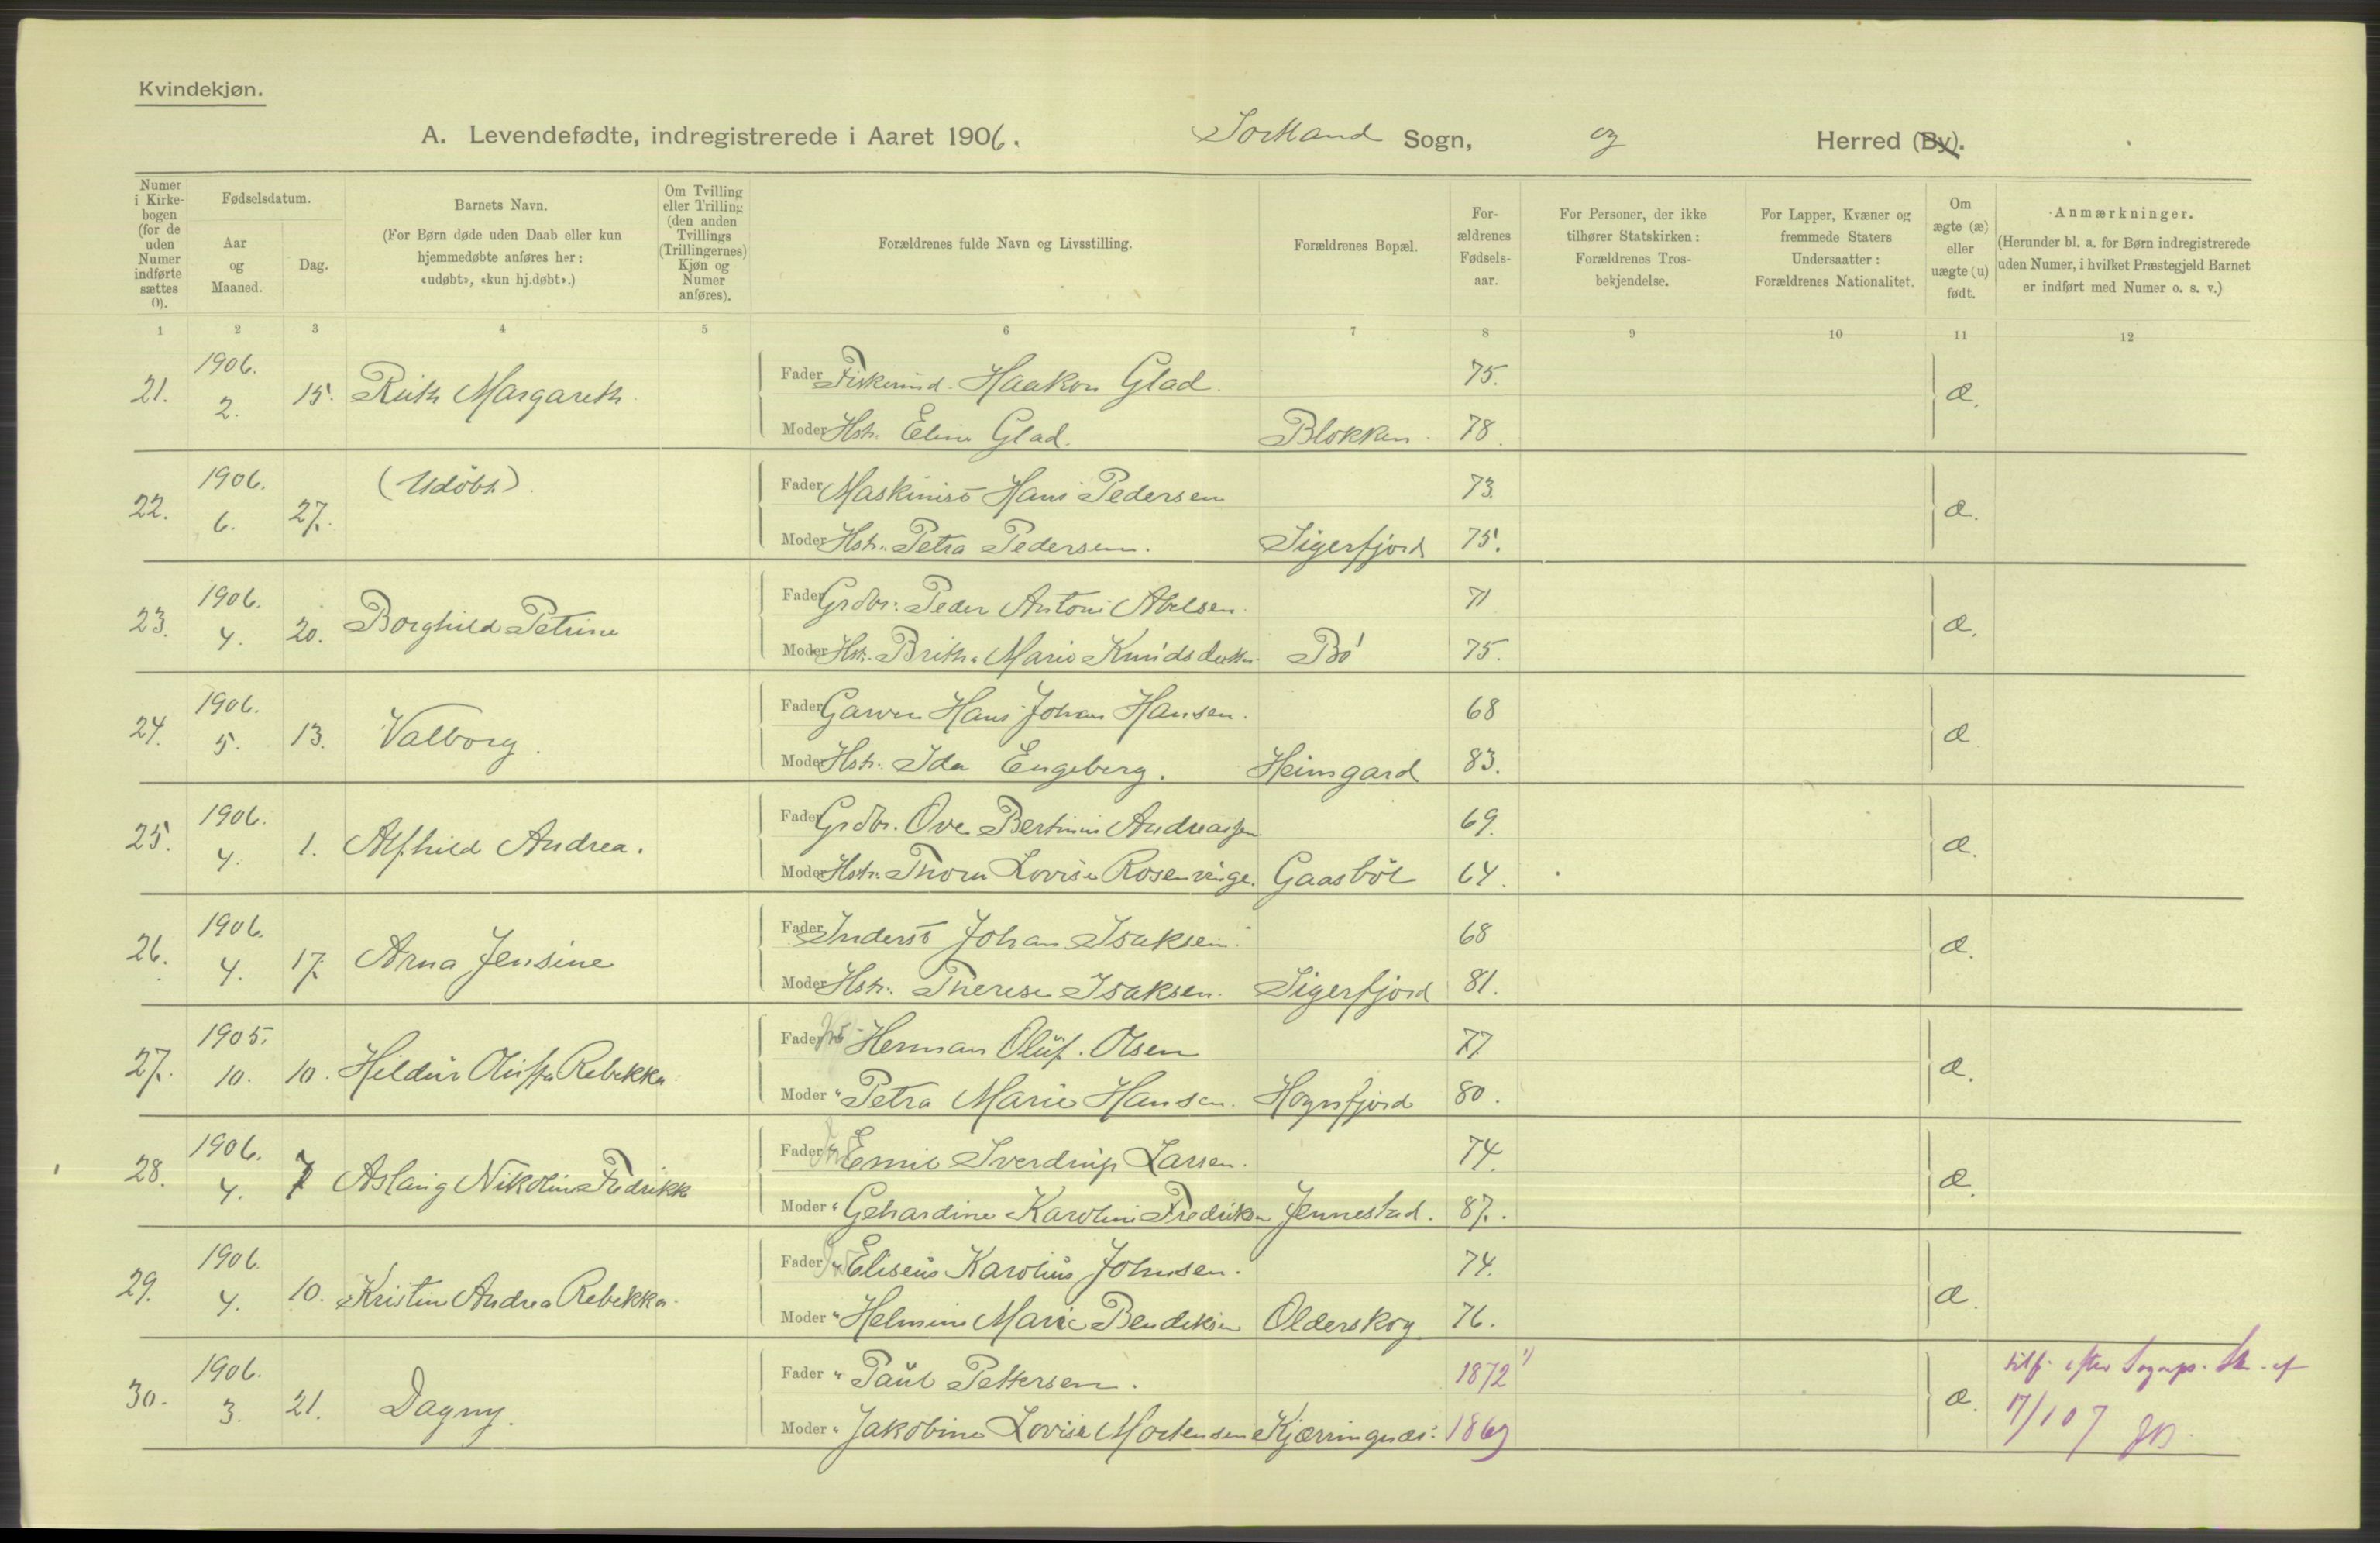 Kvindekjøn.
A. Levendefødte, indregistrerede i Aaret 1906. Sortland Sogn, og Herred (By).
Numer i Kirkebogen (for de uden Numer indførte sættes 0).
Fødselsdatum.
Aar og Maaned.
Dag.
Barnets Navn.
(For Børn døde uden Daab eller kun hjemmedøbte anføres her: «udøbt», «kun hj.døbt».)
Om Tvilling eller Trilling (den anden Tvillings (Trillingernes) Kjøn og Numer anføres).
Forældrenes fulde Navn og Livsstilling.
Forældrenes Bopæl.
Forældrenes Fødselsaar.
For Personer, der ikke tilhører Statskirken: Forældrenes Trosbekjendelse.
For Lapper, Kvæner og fremmede Staters Undersaatter: Forældrenes Nationalitet.
Om ægte (æ) eller uægte (u) født.
Anmærkninger.
(Herunder bl. a. for Børn indregistrerede uden Numer, i hvilket Præstegjeld Barnet er indført med Numer o. s. v.)
1 2 3 4 5 6 7 8 9 10 11 12
21. 1906. 2. 15. Ruth Margareth. Fader Haakon Glad. 75. æ.
Moder Hstr. Eline Glad. Blokken. 78.
22. 1906. 6. 27. (Udøbt). Fader Maskinist Hans Pedersen 73. æ.
Moder Hstr. Petra Pedersen. Sigerfjord 75.
23. 1906. 4. 20. Borghild Petrine Fader Grdbr. Peder Antoni Abelsen. 71 æ.
Moder Hstr. Maria Knudsdatter. Bø 75.
24. 1906. 5. 13. Valborg. Fader Garver Hans Johan Hansen. 68 æ
Moder Hstr. Ida Engeberg. Heimgard 83.
25. 1906. 4. 1. Alfhild Andrea. Fader Grdbr. Ove Bertinius Andreassen 69. æ.
Moder Hstr. Thora Lovise Rosenvinge. Gaasbøl 64.
26. 1906. 4. 17. Arna Jensine Fader Inderst Johan Isaksen. 68 æ.
Moder Hstr. Therese Isaksen. Sigerfjord 81.
27. 1905. 10. 10. Hildur Oluffa Rebekka. Fader Herman Oluf. Olsen 77 æ.
Moder " Petra Marie Hansen. Hognfjord 80.
28. 1906. 4. 7 Aslaug Nikoline Fredrikk Fader " Emil Sverdrup Larsen. 74. æ.
Moder " Gehardine Karoline Fredriksen Jennestad. 87.
29. 1906. 4. 10. Kristine Andrea Rebekka. Fader " Eliseus Karolius Johnsen. 74. æ.
Moder " Helmine Marie Bendiksen Olderskog 76.
30. 1906. 3. 21. Dagny. Fader " Paul Pettersen. 1872 ¹) æ. tilf. efter Sogneps. Skr. af
Moder " Jakobine Lovise Mortensen Kjærringnæs. 1869 17/1 07 JB.